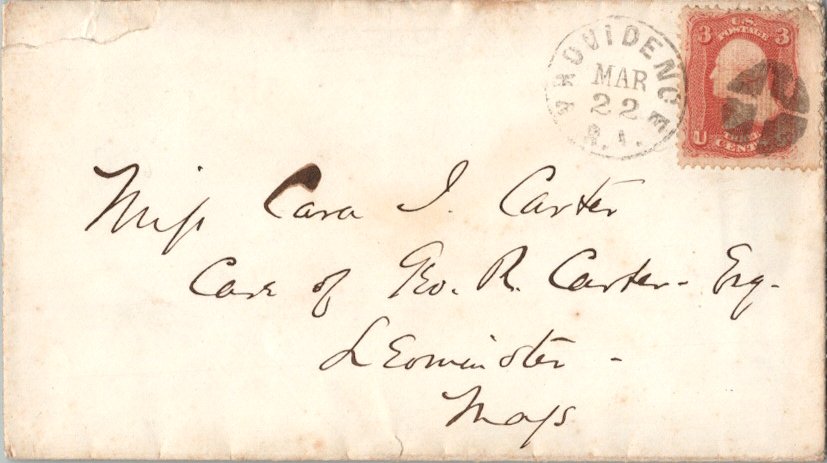 PROVIDENCE
MAR
22
R.I.
3 U.S. POSTAGE 3
U
CENTS
Miss Cara I. Carter
Care of Geo. R. Carter - Esq -
Leominster -
Mass